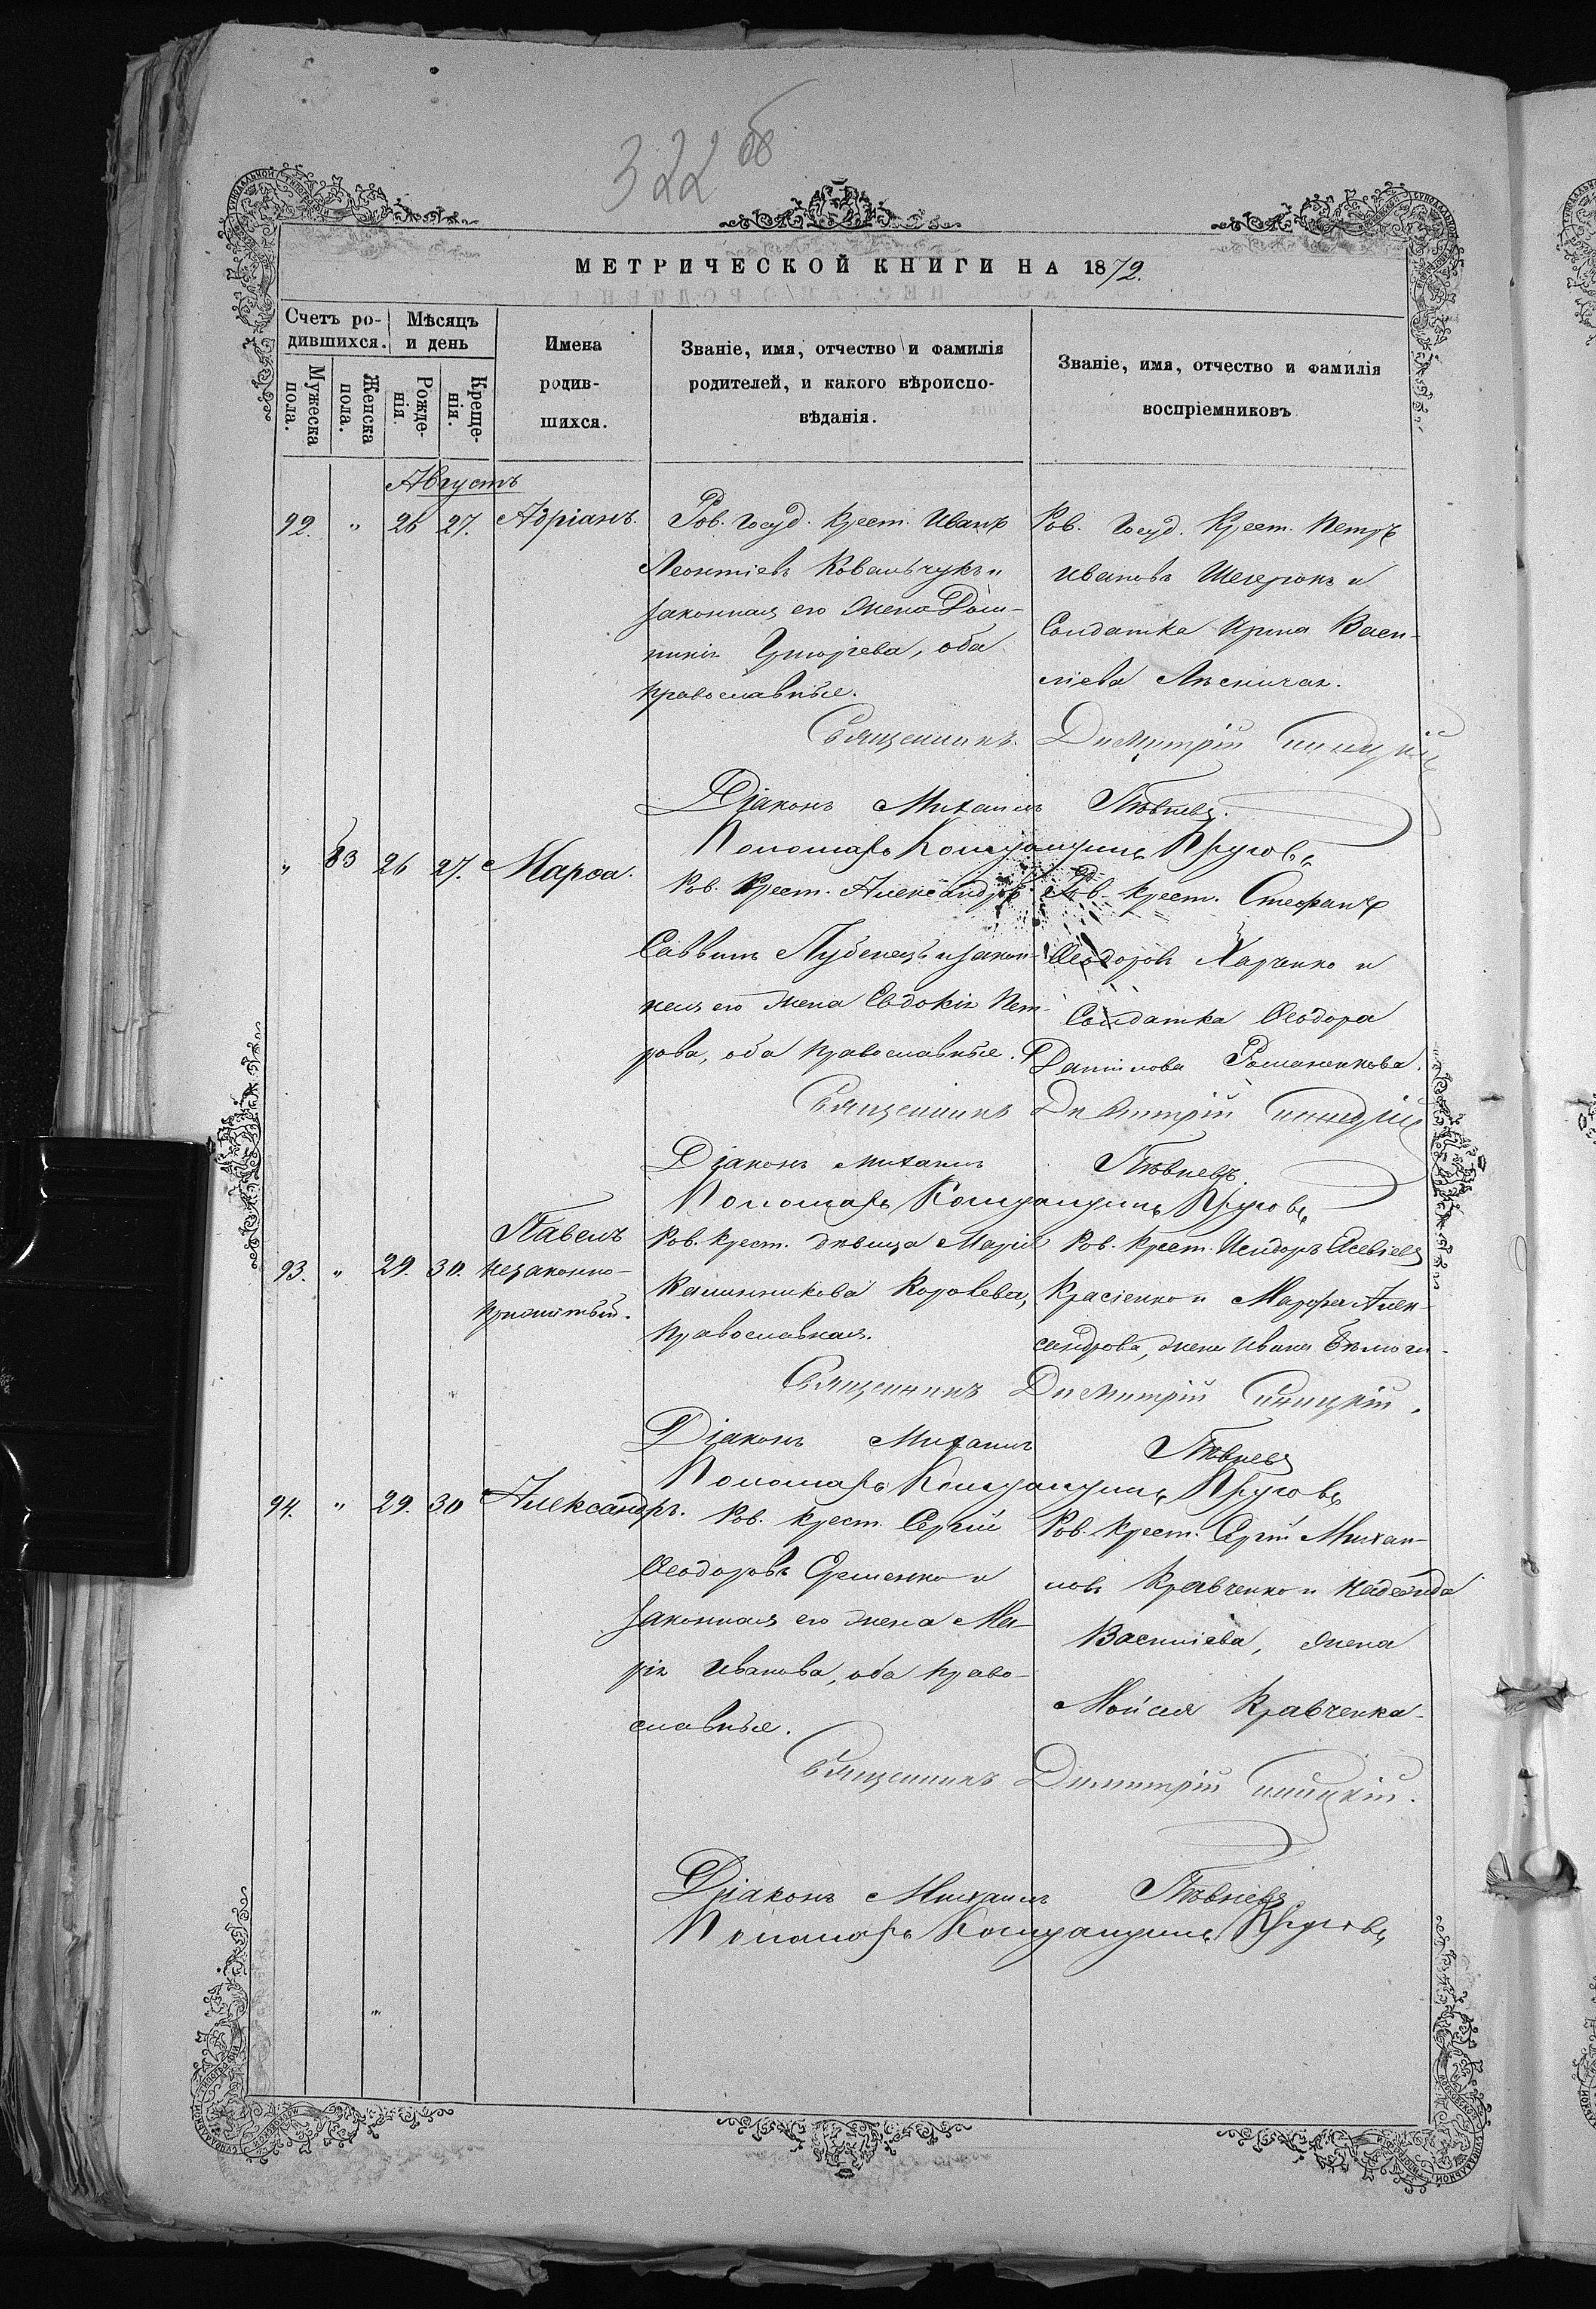 322 об
МЕТРИЧЕСКОЙ КНИГИ НА 1872.
Счетъ ро-
дившихся.
Мѣсяцъ
и день
Мужеска
пола.
Женска
пола.
Рожде-
нія.
Креще-
нія.
Имена
родив-
шихся.
Званіе, имя, отчество и фамилія
родителей, и какого вѣроиспо-
вѣданія.
Званіе, имя, отчество и фамилія
воспріемниковъ
Августъ
92. " 26 27. Адріанъ.
Ров. Госуд. Крест. Иванъ
Леонтіевъ Ковальчукъ и
законная его жена Дом-
никія Григоріева, оба
православные.
Ров. Госуд. Крест. Петръ
Ивановъ и
Солдатка Ирина Васи-
ліева
Священникъ Димитрій Синицкій
Діаконъ Михаилъ Пѣвневъ.
Пономарь Константинъ Круговъ
" 83 26 27. Марѳа.
Ров. Крест. Александръ
Саввинъ Лубенецъ и закон-
ная его жена Евдокія Пет-
рова, оба православные.
Ров. Крест. Стефанъ
Ѳеодоровъ Харченко и
Солдатка Ѳеодора
Даніилова Романенкова.
Священникъ Димитрій Синицкій
Діаконъ Михаилъ Пѣвневъ.
Пономарь Константинъ Круговъ
93. " 29. 30.
Павелъ
незаконно-
прижитый.
Ров. Крест. дѣвица Марія
Калинникова Королева,
православная.
Ров. Крест. Исидоръ Евсевіевъ
Красіенко и Марфа Алек-
сандрова, жена Ивана
Священникъ Димитрій Синицкій.
Діаконъ Михаилъ Пѣвневъ
Пономарь Константинъ Круговъ
94. " 29. 30 Александръ.
Ров. Крест. Сергій
Ѳеодоровъ Еременко и
законная его жена Ма-
рія Иванова, оба право-
славные.
Ров. Крест. Сергій Михаи-
ловъ Кравченко и Надежда
Василіева, жена
Мойсея Кравченка
Священникъ Димитрій Синицкій.
Діаконъ Михаилъ Пѣвневъ
Пономарь Константинъ Круговъ